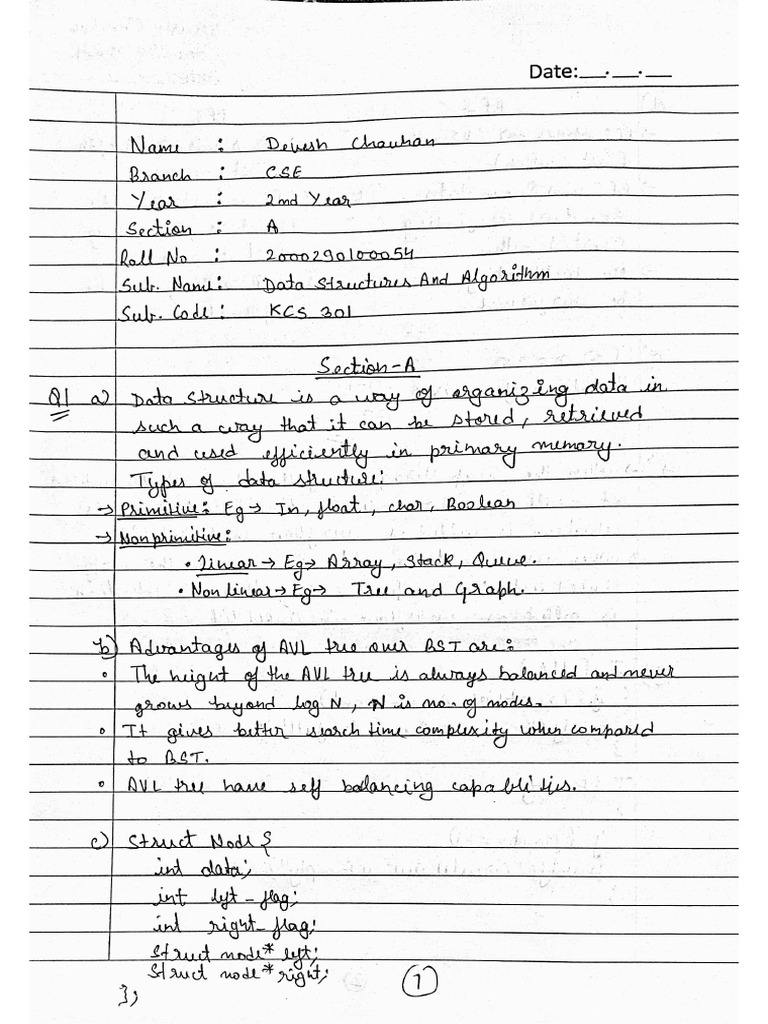 Date:__.__.__
Name : Devesh Chauhan
Branch : CSE
Year : 2nd Year
Section : A
Roll No : 2000290100054
Sub. Name: Data Structures And Algorithm
Sub. Code: KCS 301
Section-A
Q1 a) Data Structure is a way of organizing data in
such a way that it can be stored, retrieved
and used efficiently in primary memory.
Types of data structure:
→ Primitive: Eg → In, float, char, Boolean
→ Nonprimitive:
• Linear → Eg → Array, Stack, Queue.
• Non linear → Eg → Tree and Graph.
b) Advantages of AVL tree over BST are:
• The height of the AVL tree is always balanced and never
grows beyond log N, N is no. of nodes.
• It gives better search time complexity when compared
to BST.
• AVL tree have self balancing capablities.
c) Struct Node {
int data;
int left_flag;
int right_flag;
Struct node* left;
Struct node* right;
};
1